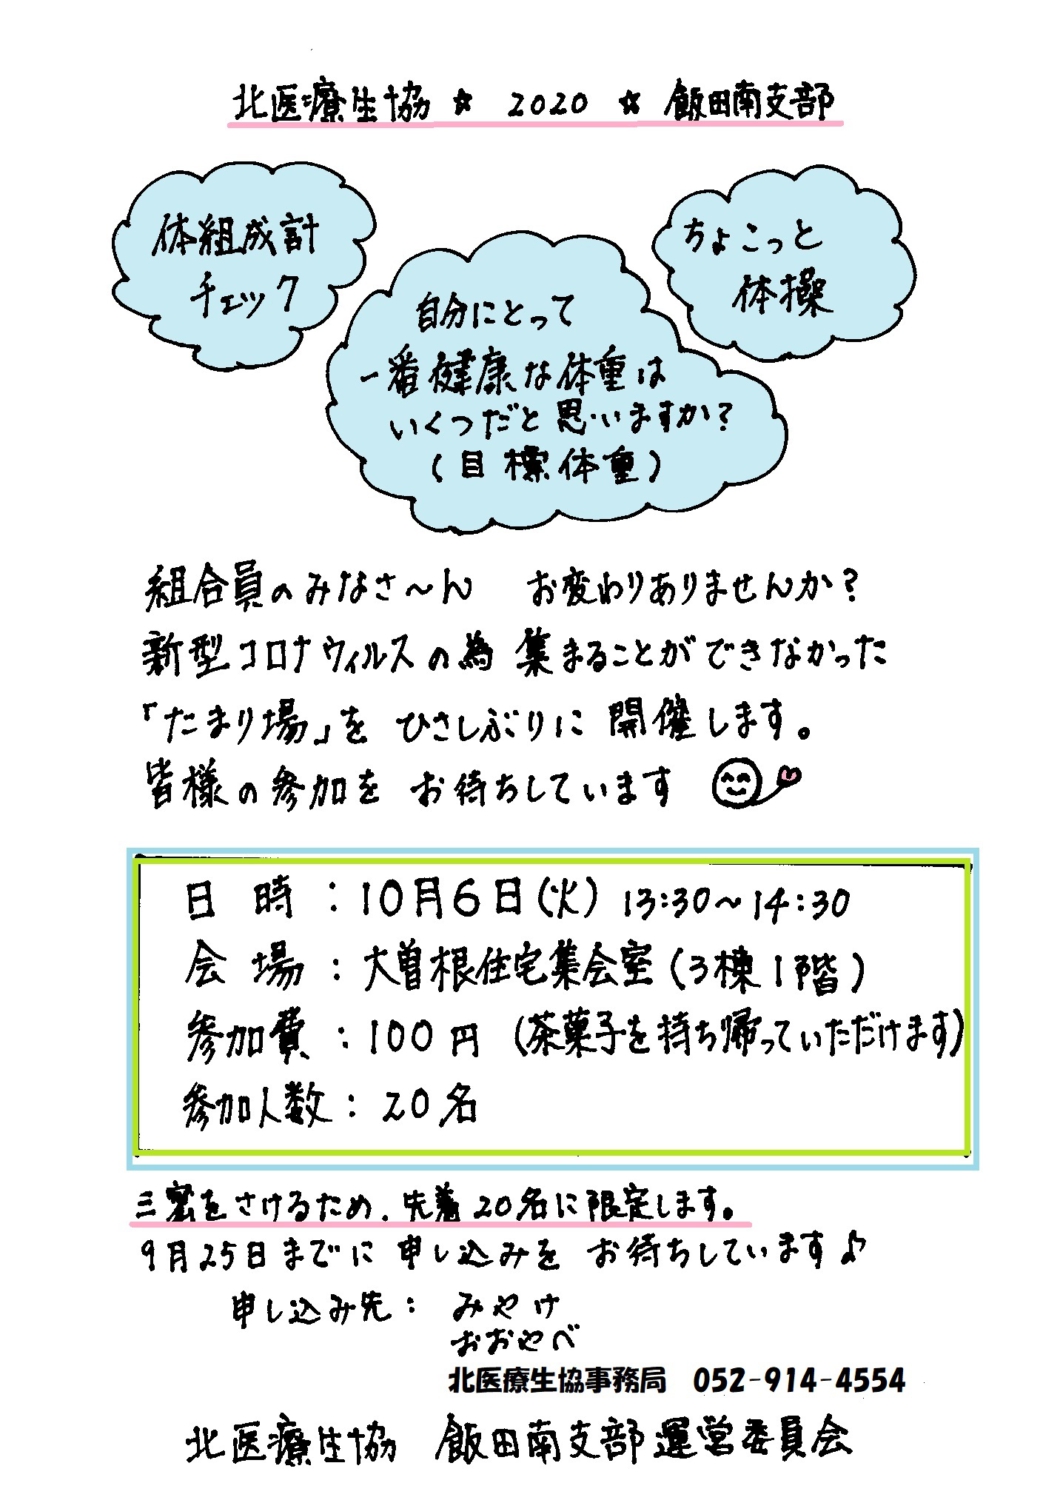 北医療生協 ☆ 2020 ☆ 飯田南支部
体組成計
チェック
ちょこっと
体操
自分にとって
一番健康な体重は
いくつだと思いますか?
(目標体重)
組合員のみなさ〜ん お変わりありませんか?
新型コロナウィルスの為 集まることができなかった
「たまり場」を ひさしぶりに 開催します。
皆様の参加を お待ちしています
日 時 : 10月6日(火) 13:30〜14:30
会 場 : 大曽根住宅集会室(3棟1階)
参加費 : 100円 (茶菓子を持ち帰っていただけます)
参加人数 : 20名
三密をさけるため、先着20名に限定します。
9月25日までに 申し込みを お待ちしています♪
申し込み先 : みやけ
おおやべ
北医療生協事務局 052-914-4554
北医療生協 飯田南支部運営委員会